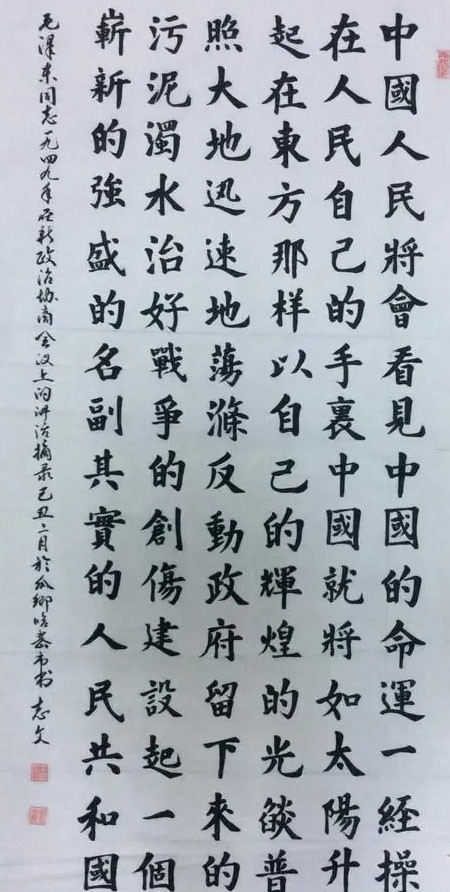 中國人民將會看見中國的命運一經操
在人民自己的手裏中國就將如太陽升
起在東方那样以自己的輝煌的光燄普
照大地迅速地蕩滌反動政府留下来的
污泥濁水治好戰爭的創傷建設起一個
嶄新的強盛的名副其實的人民共和國
毛澤东同志一九四九年在新政治协商会议上的讲话摘录己丑二月於瓜鄉哈密市书 志文